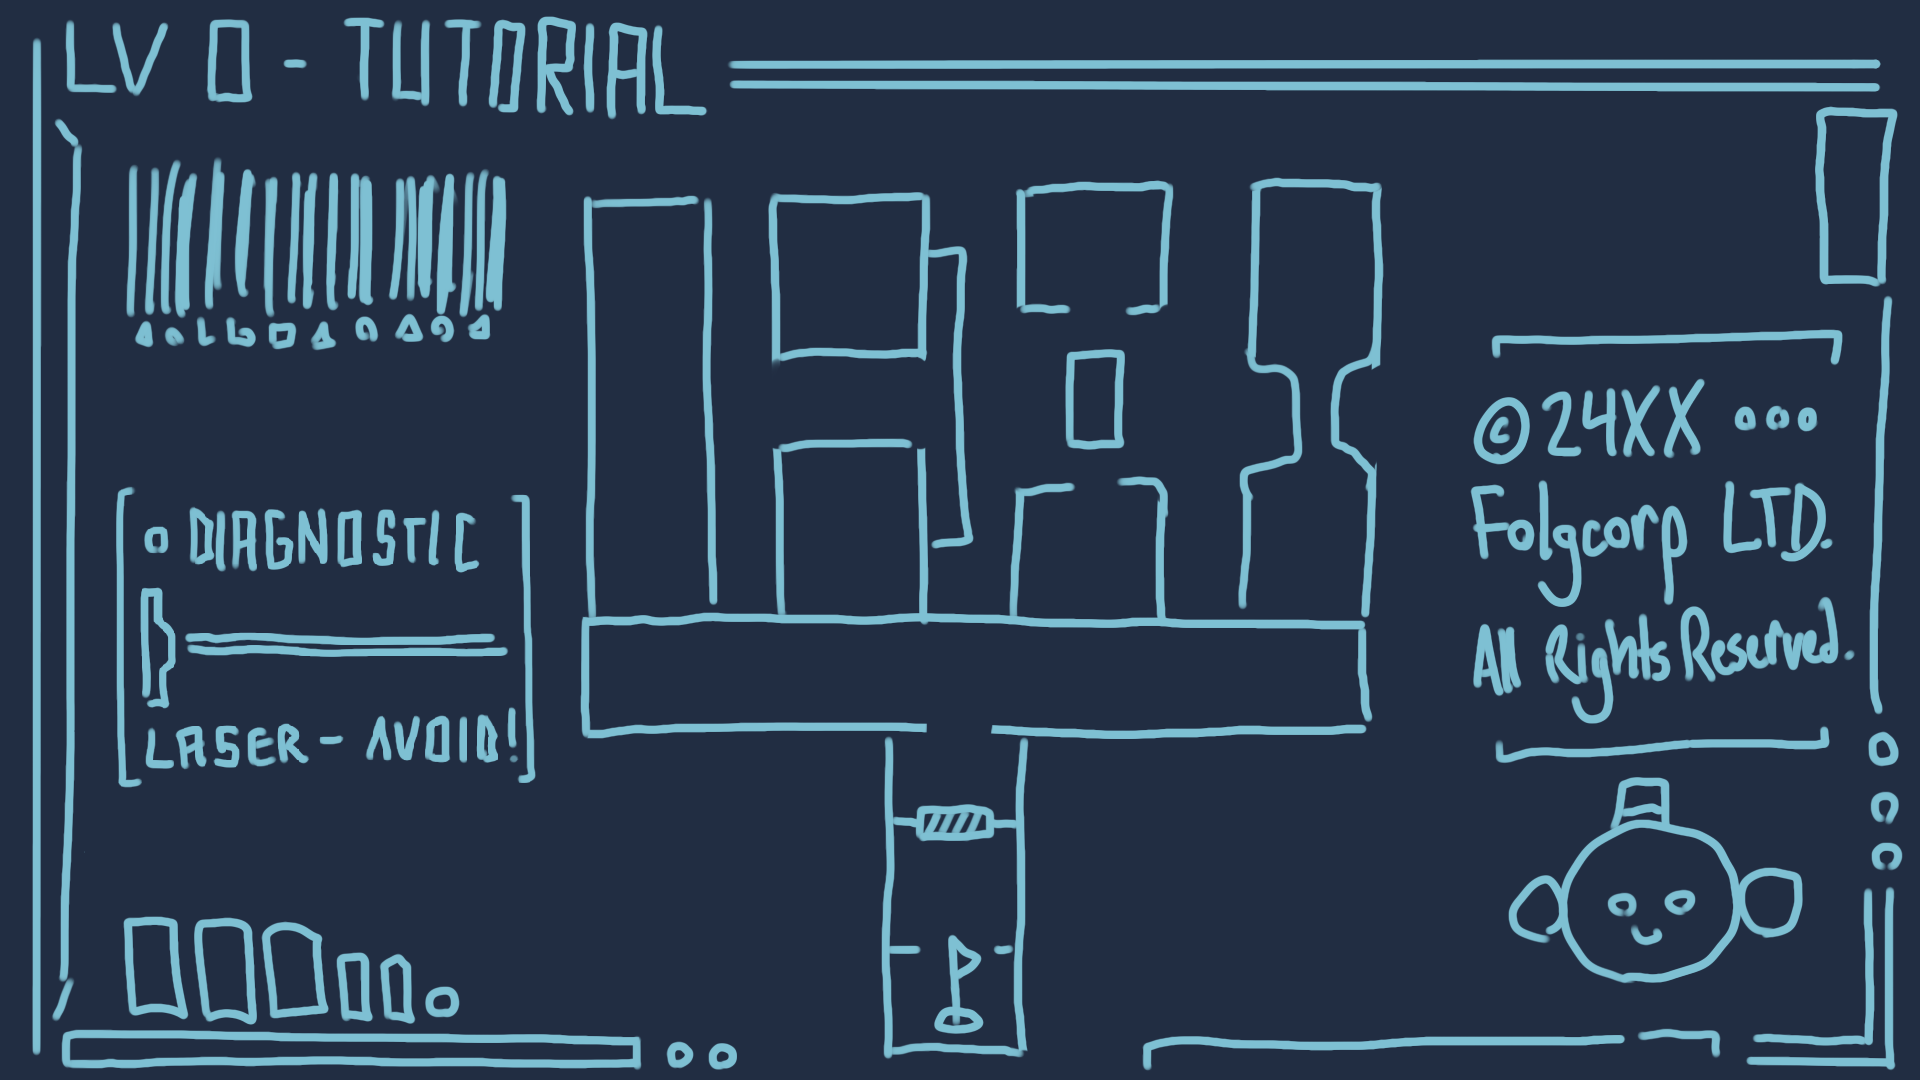 LV 0 - TUTORIAL
DIAGNOSTIC
LASER - AVOID!
© 24XX
Folgcorp LTD.
All Rights Reserved.